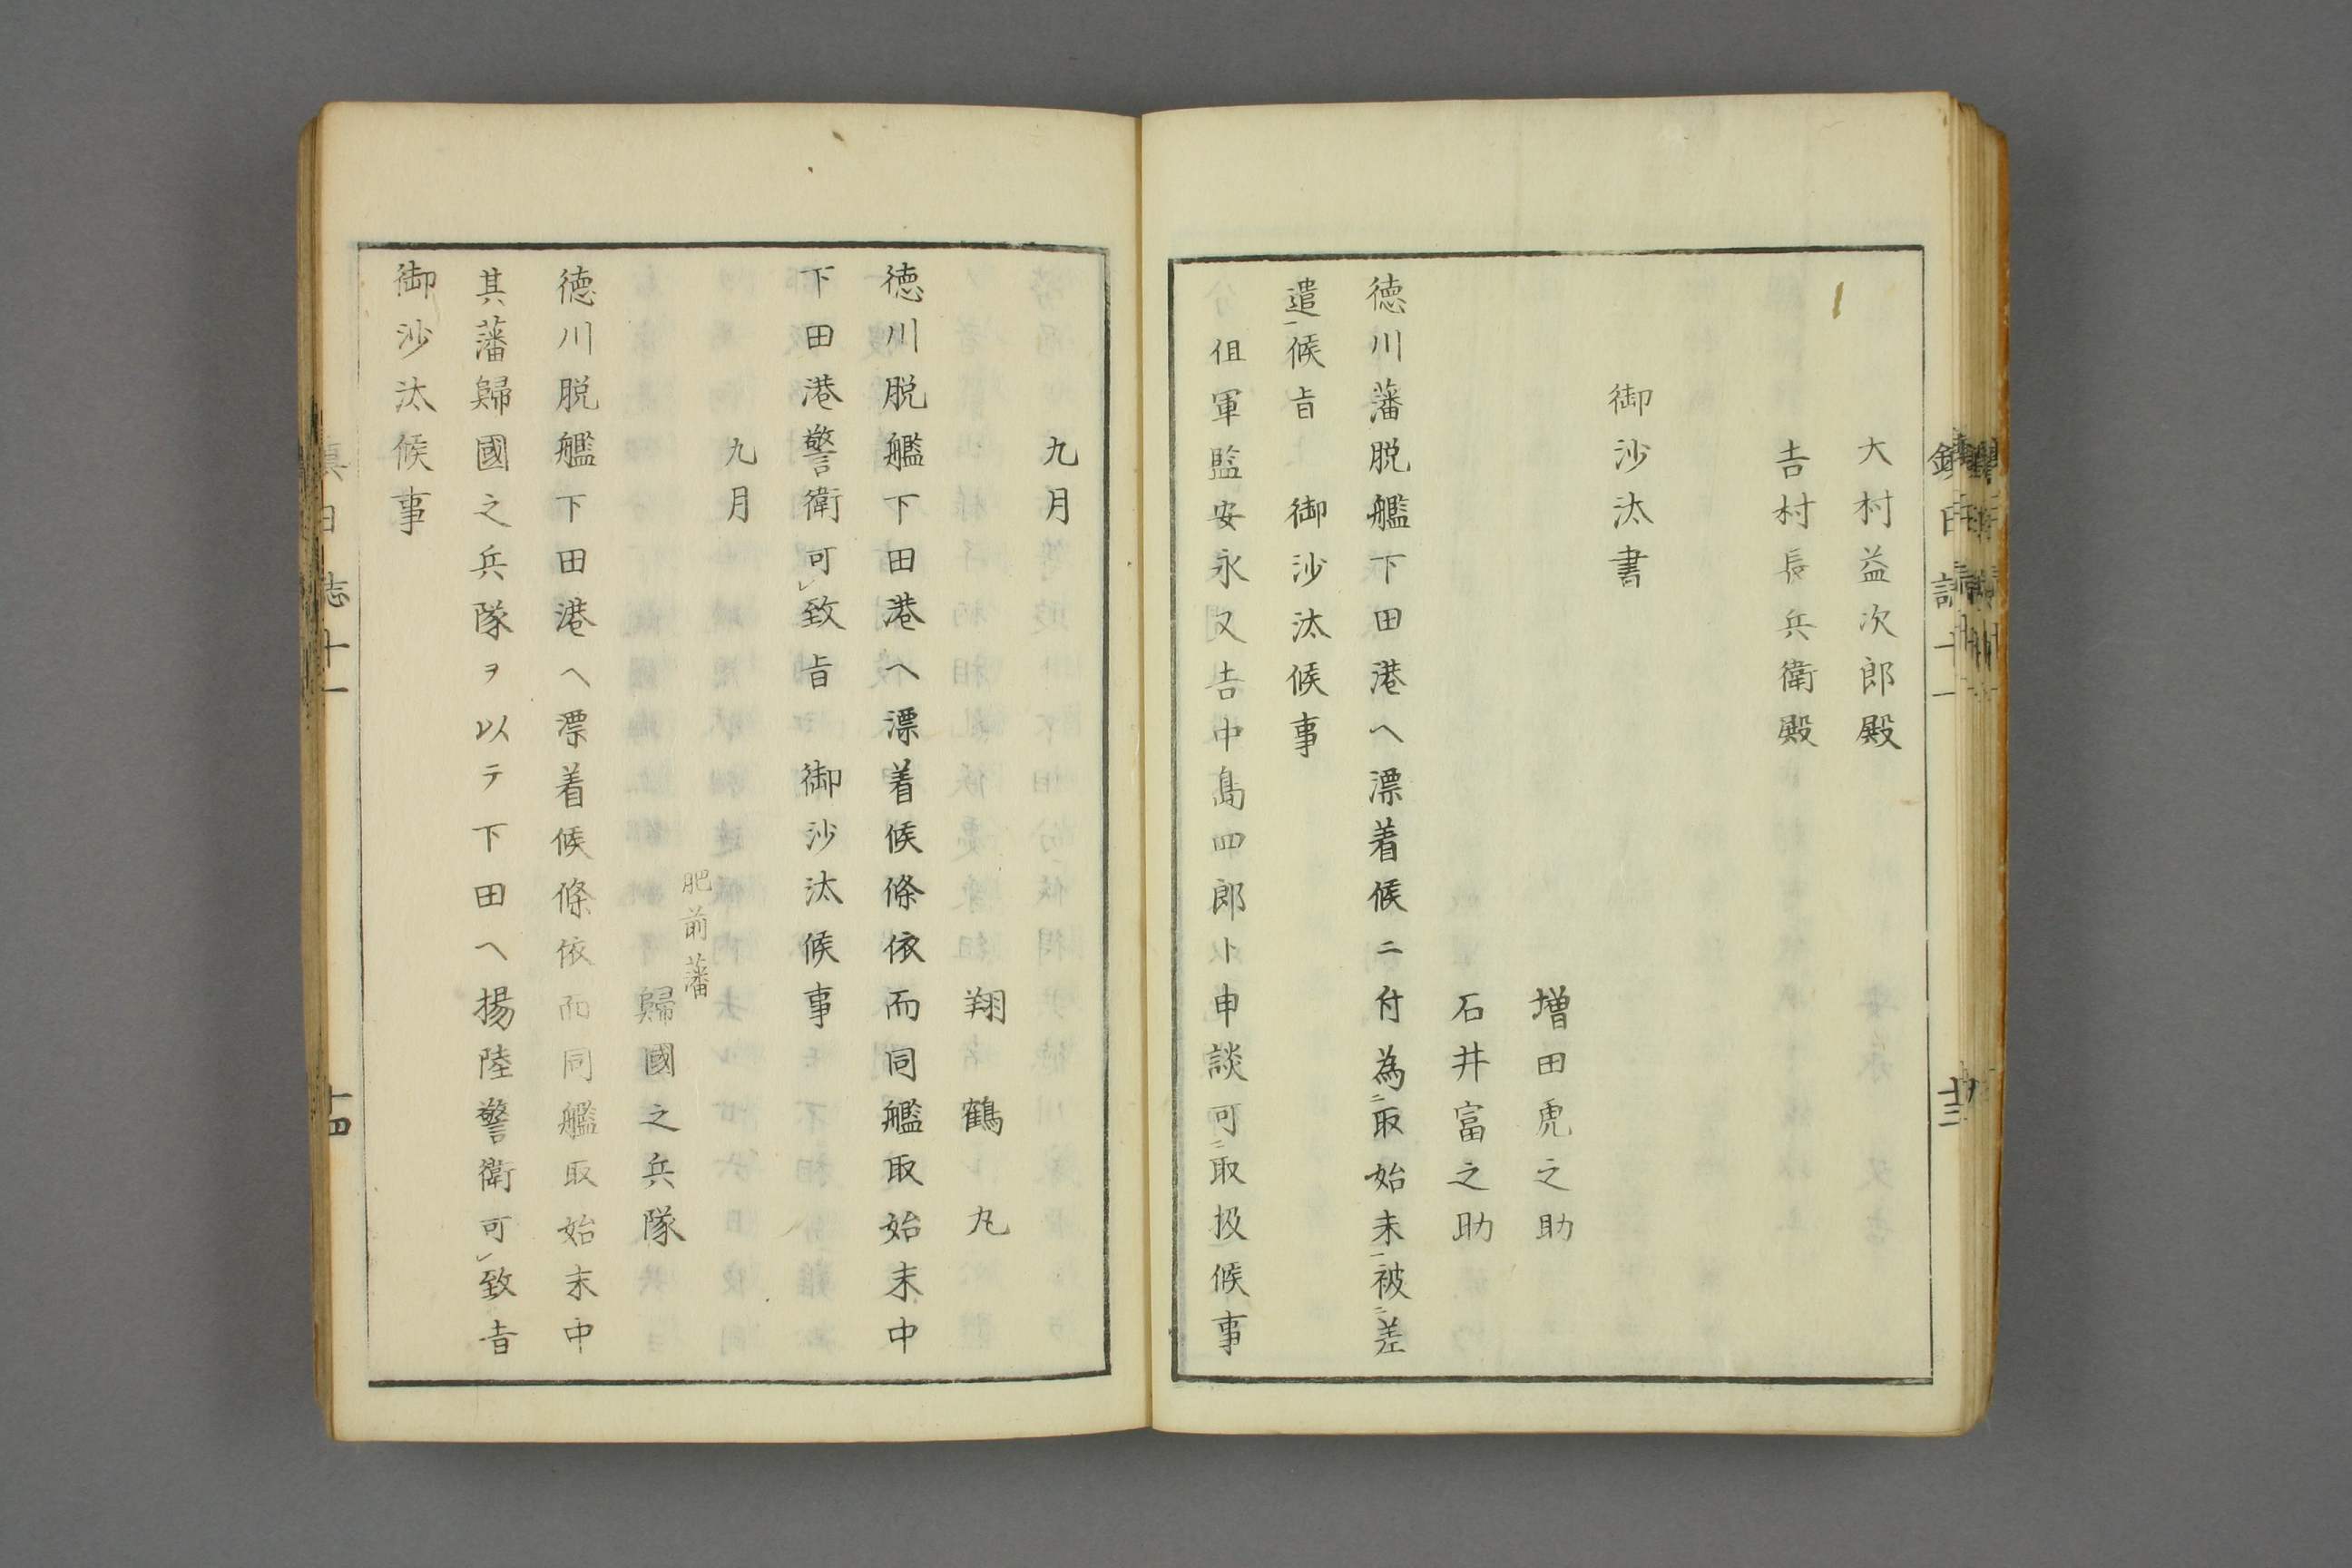 大村益次郎殿
吉村長兵衛殿
御沙汰書
増田虎之助
石井富之助
徳川藩脱艦下田港ヘ漂着候ニ付為㆓取始末㆒被㆓差
遣㆒候旨　御沙汰候事
但軍監安永又吉中島四郎ト申談可㆓取扱㆒候事
九月
翔鶴丸
徳川脱艦下田港ヘ漂着候條依而同艦取始末中
下田港警衛可㆑致旨　御沙汰候事
九月
肥前藩
歸國之兵隊
徳川脱艦下田港ヘ漂着候條依而同艦取始末中
其藩歸國之兵隊ヲ以テ下田ヘ揚陸警衛可㆑致旨
御沙汰候事
日志十一
十四